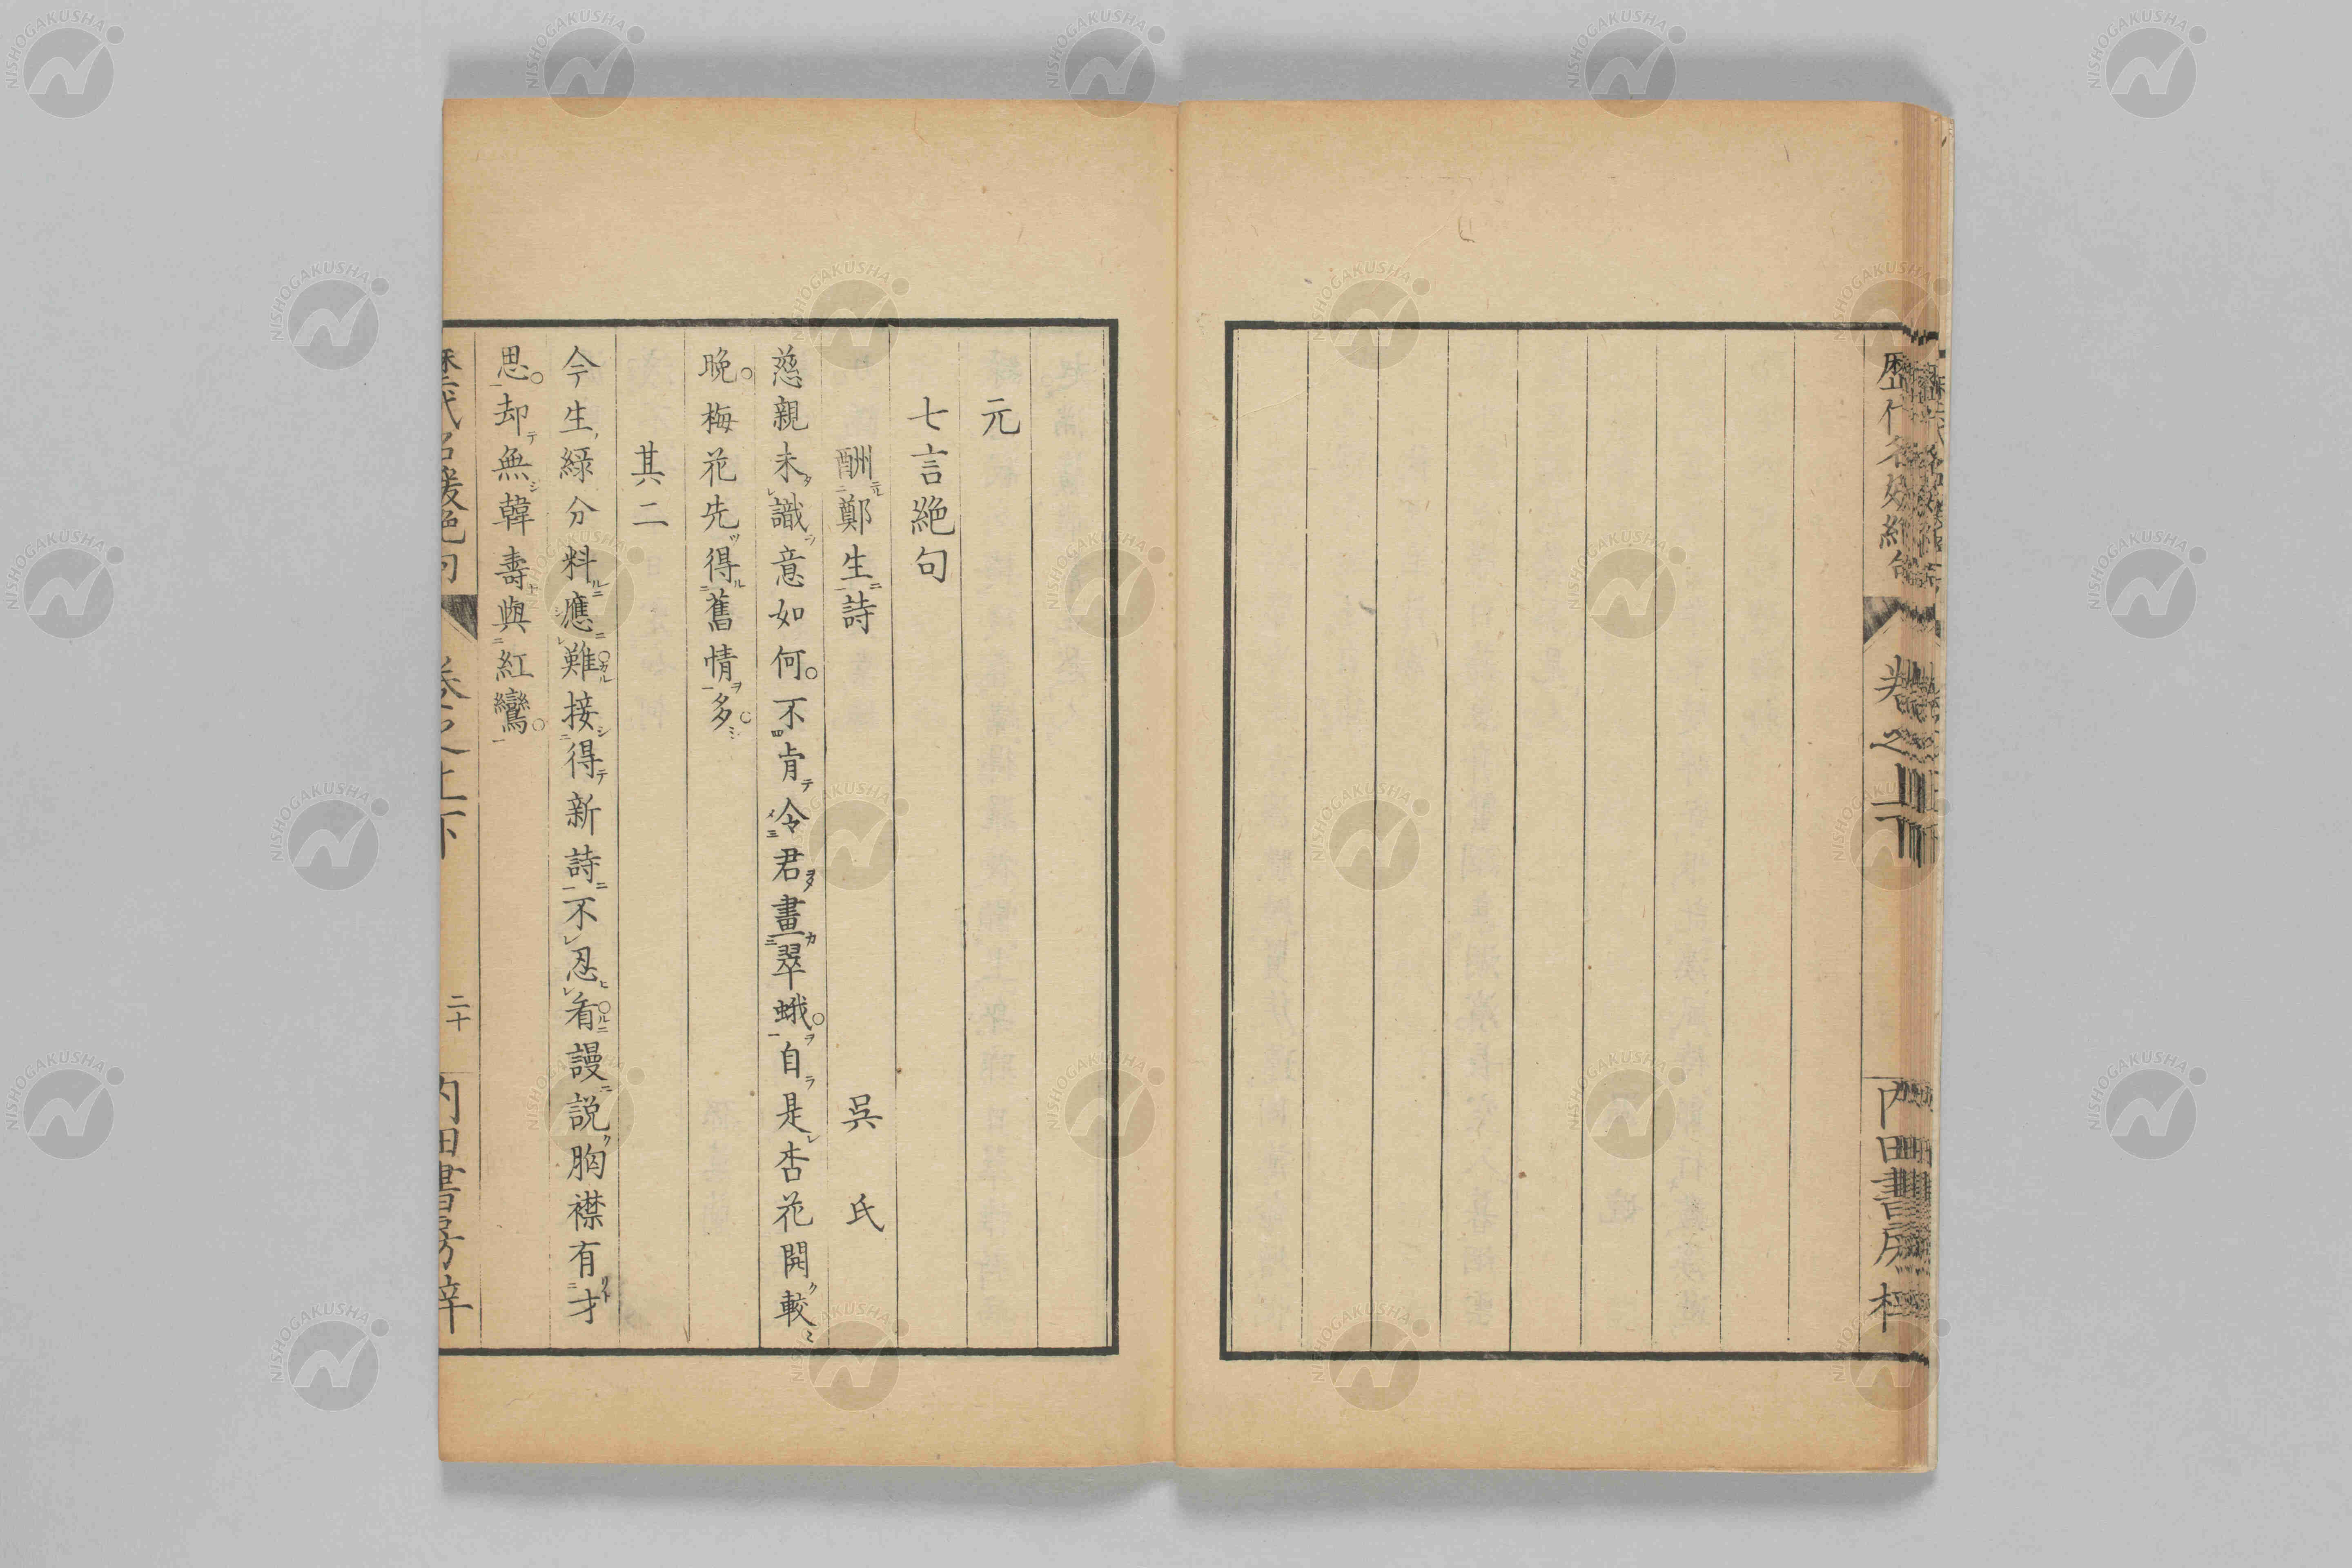 元
七言絶句
酬鄭生詩 吳氏
慈親未識意如何。不肯令君畫翠蛾。自是杏花開較
晩。梅花先得舊情多。
其二
今生緑分料應難接得新詩不忍看謾説胸襟有才
思。却無韓壽與紅鸞。
歴代名媛絶句 卷之上下 二十 内田書房梓
NISHOGAKUSHA